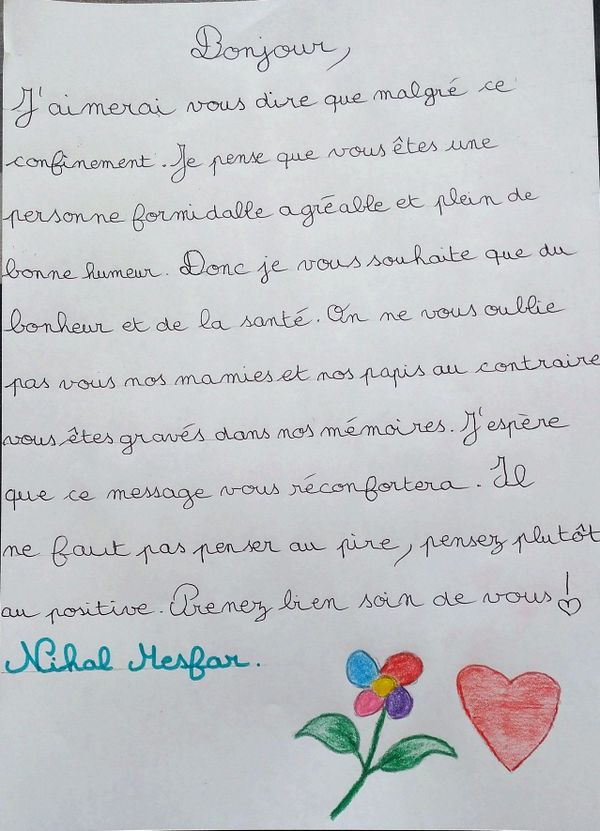 Bonjour,
J'aimerai vous dire que malgré ce
confinement. Je pense que vous êtes une
personne formidable agréable et plein de
bonne humeur. Donc je vous souhaite que du
bonheur et de la santé. On ne vous oublie
pas vous nos mamies et nos papis au contraire
vous êtes gravés dans nos mémoires. J'espère
que ce message vous réconfortera. Il
ne faut pas penser au pire, pensez plutôt
au positive. Prenez bien soin de vous !
Nihal Mesfar.